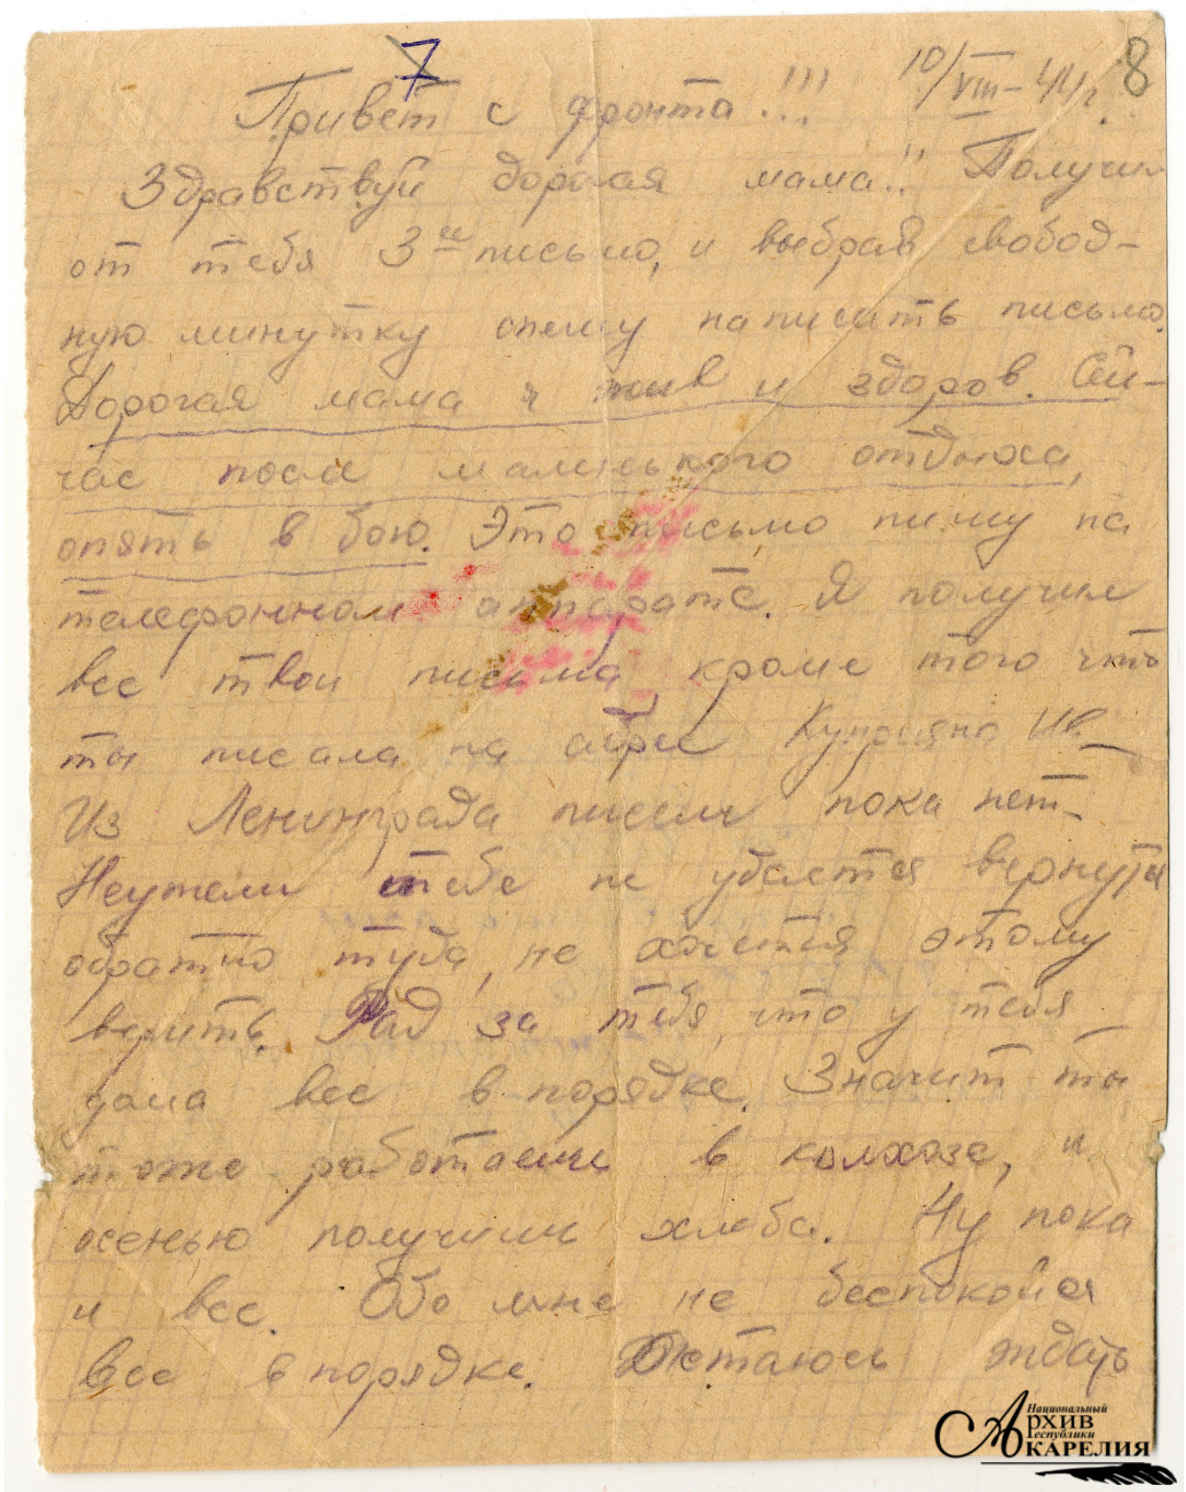 7
8
10/VIII-44г.
Привет с фронта!!!
Здравствуй дорогая мама!! Получил
от тебя 3ее письмо, и выбрав свобод-
ную минутку спешу написать письмо.
Дорогая мама я жив и здоров. Сей-
час после маленького отдыха,
опять в бою. Это письмо пишу на
телефонном аппарате. Я получил
все твои письма, кроме того что
ты писала на адрес Куприяна Ив.
Из Ленинграда писем пока нет.
Неужели тебе не удается вернутся
обратно туда, не хочется этому
верить. Рад за тебя, что у тебя
дома все в порядке. Значит ты
тоже работаешь в колхозе, и
осенью получишь хлеба. Ну пока
и все. Обо мне не беспокойся
все в порядке. Остаюсь ждать
Национальный
Архив
Республики
Карелия